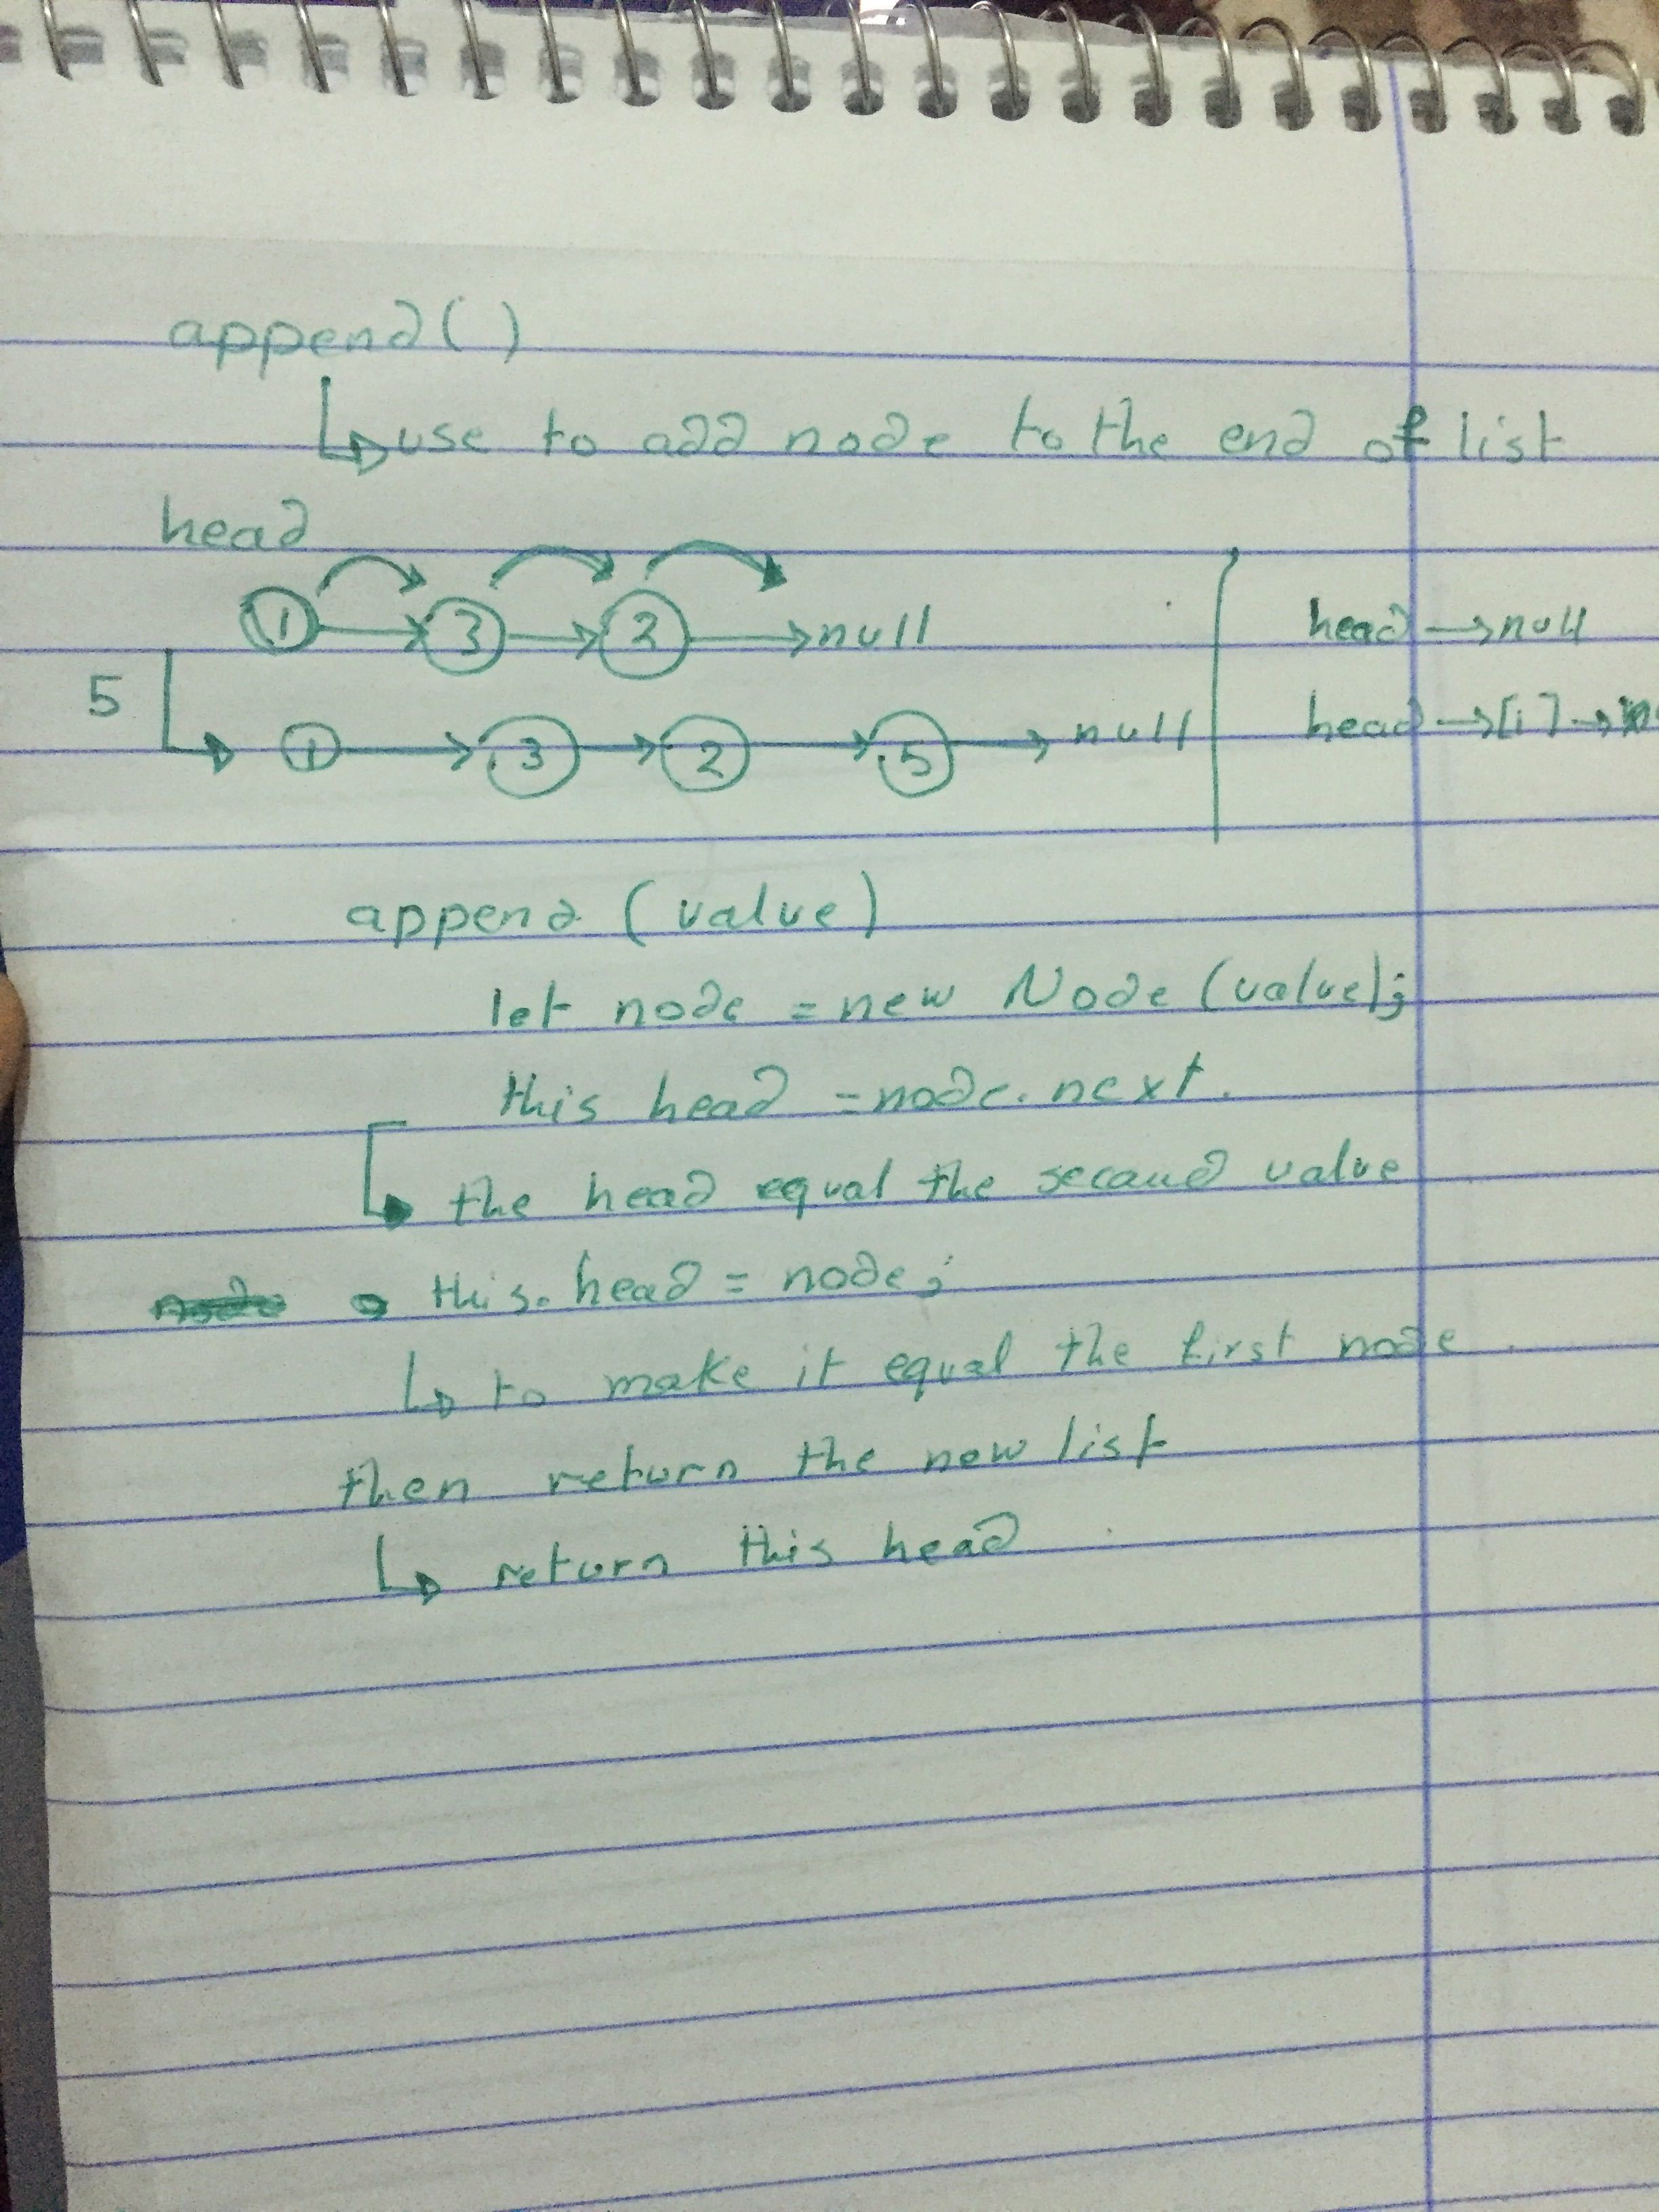 append()
use to add node to the end of list
head
1 → 3 → 2 → null
head → null
5
1 → 3 → 2 → 5 → null
head → [1] →
append (value)
let node = new Node (value);
this head = node.next.
the head equal the secaud value
this.head = node;
to make it equal the first node
then return the new list
return this head